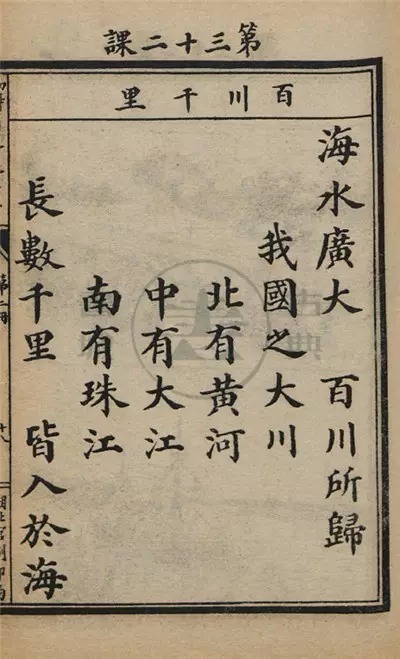 第三十二課
百川千里
海水廣大 百川所歸
我國之大川
北有黃河
中有大江
南有珠江
長數千里 皆入於海
第二冊
十八
古典